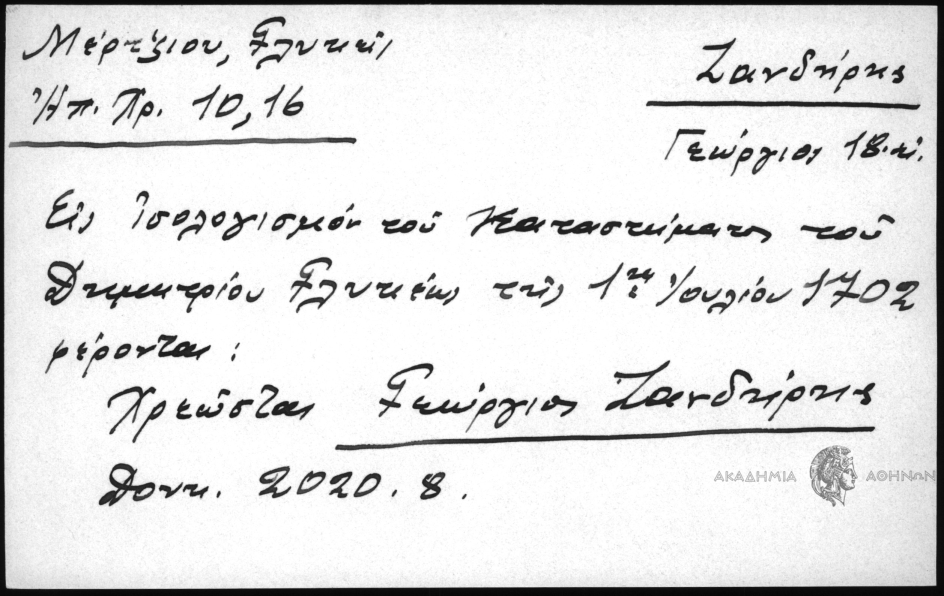 Μέρτζιου, Γλυκεῖς
Ἠπ. Χρ. 10, 16
Ζανδήρης
Γεώργιος 18. αἰ.
Εἰς Ἰσολογισμόν τοῦ Καταστήματος τοῦ
Δημητρίου Γλυκέως τῆς 1ης Ἰουλίου 1702
φέρονται:
Χρεῶσται Γεώργιος Ζανδήρης
Δουκ. 2020.8.
ΑΚΑΔΗΜΙΑ ΑΘΗΝΩΝ